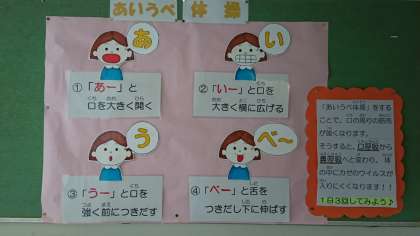 あいうべ 体操
あ
① 「あー」と
口を大きく開く
い
② 「いー」と口を
大きく横に広げる
う
③ 「うー」と口を
強く前につきだす
べ～
④ 「べー」と舌を
つきだし下に伸ばす
「あいうべ体操」をする
ことで、口の周りの筋肉
が強くなります。
そうすると、口呼吸から
鼻呼吸へと変わり、体
の中にカゼのウイルスが
入りにくくなります！！
1日3回してみよう♪